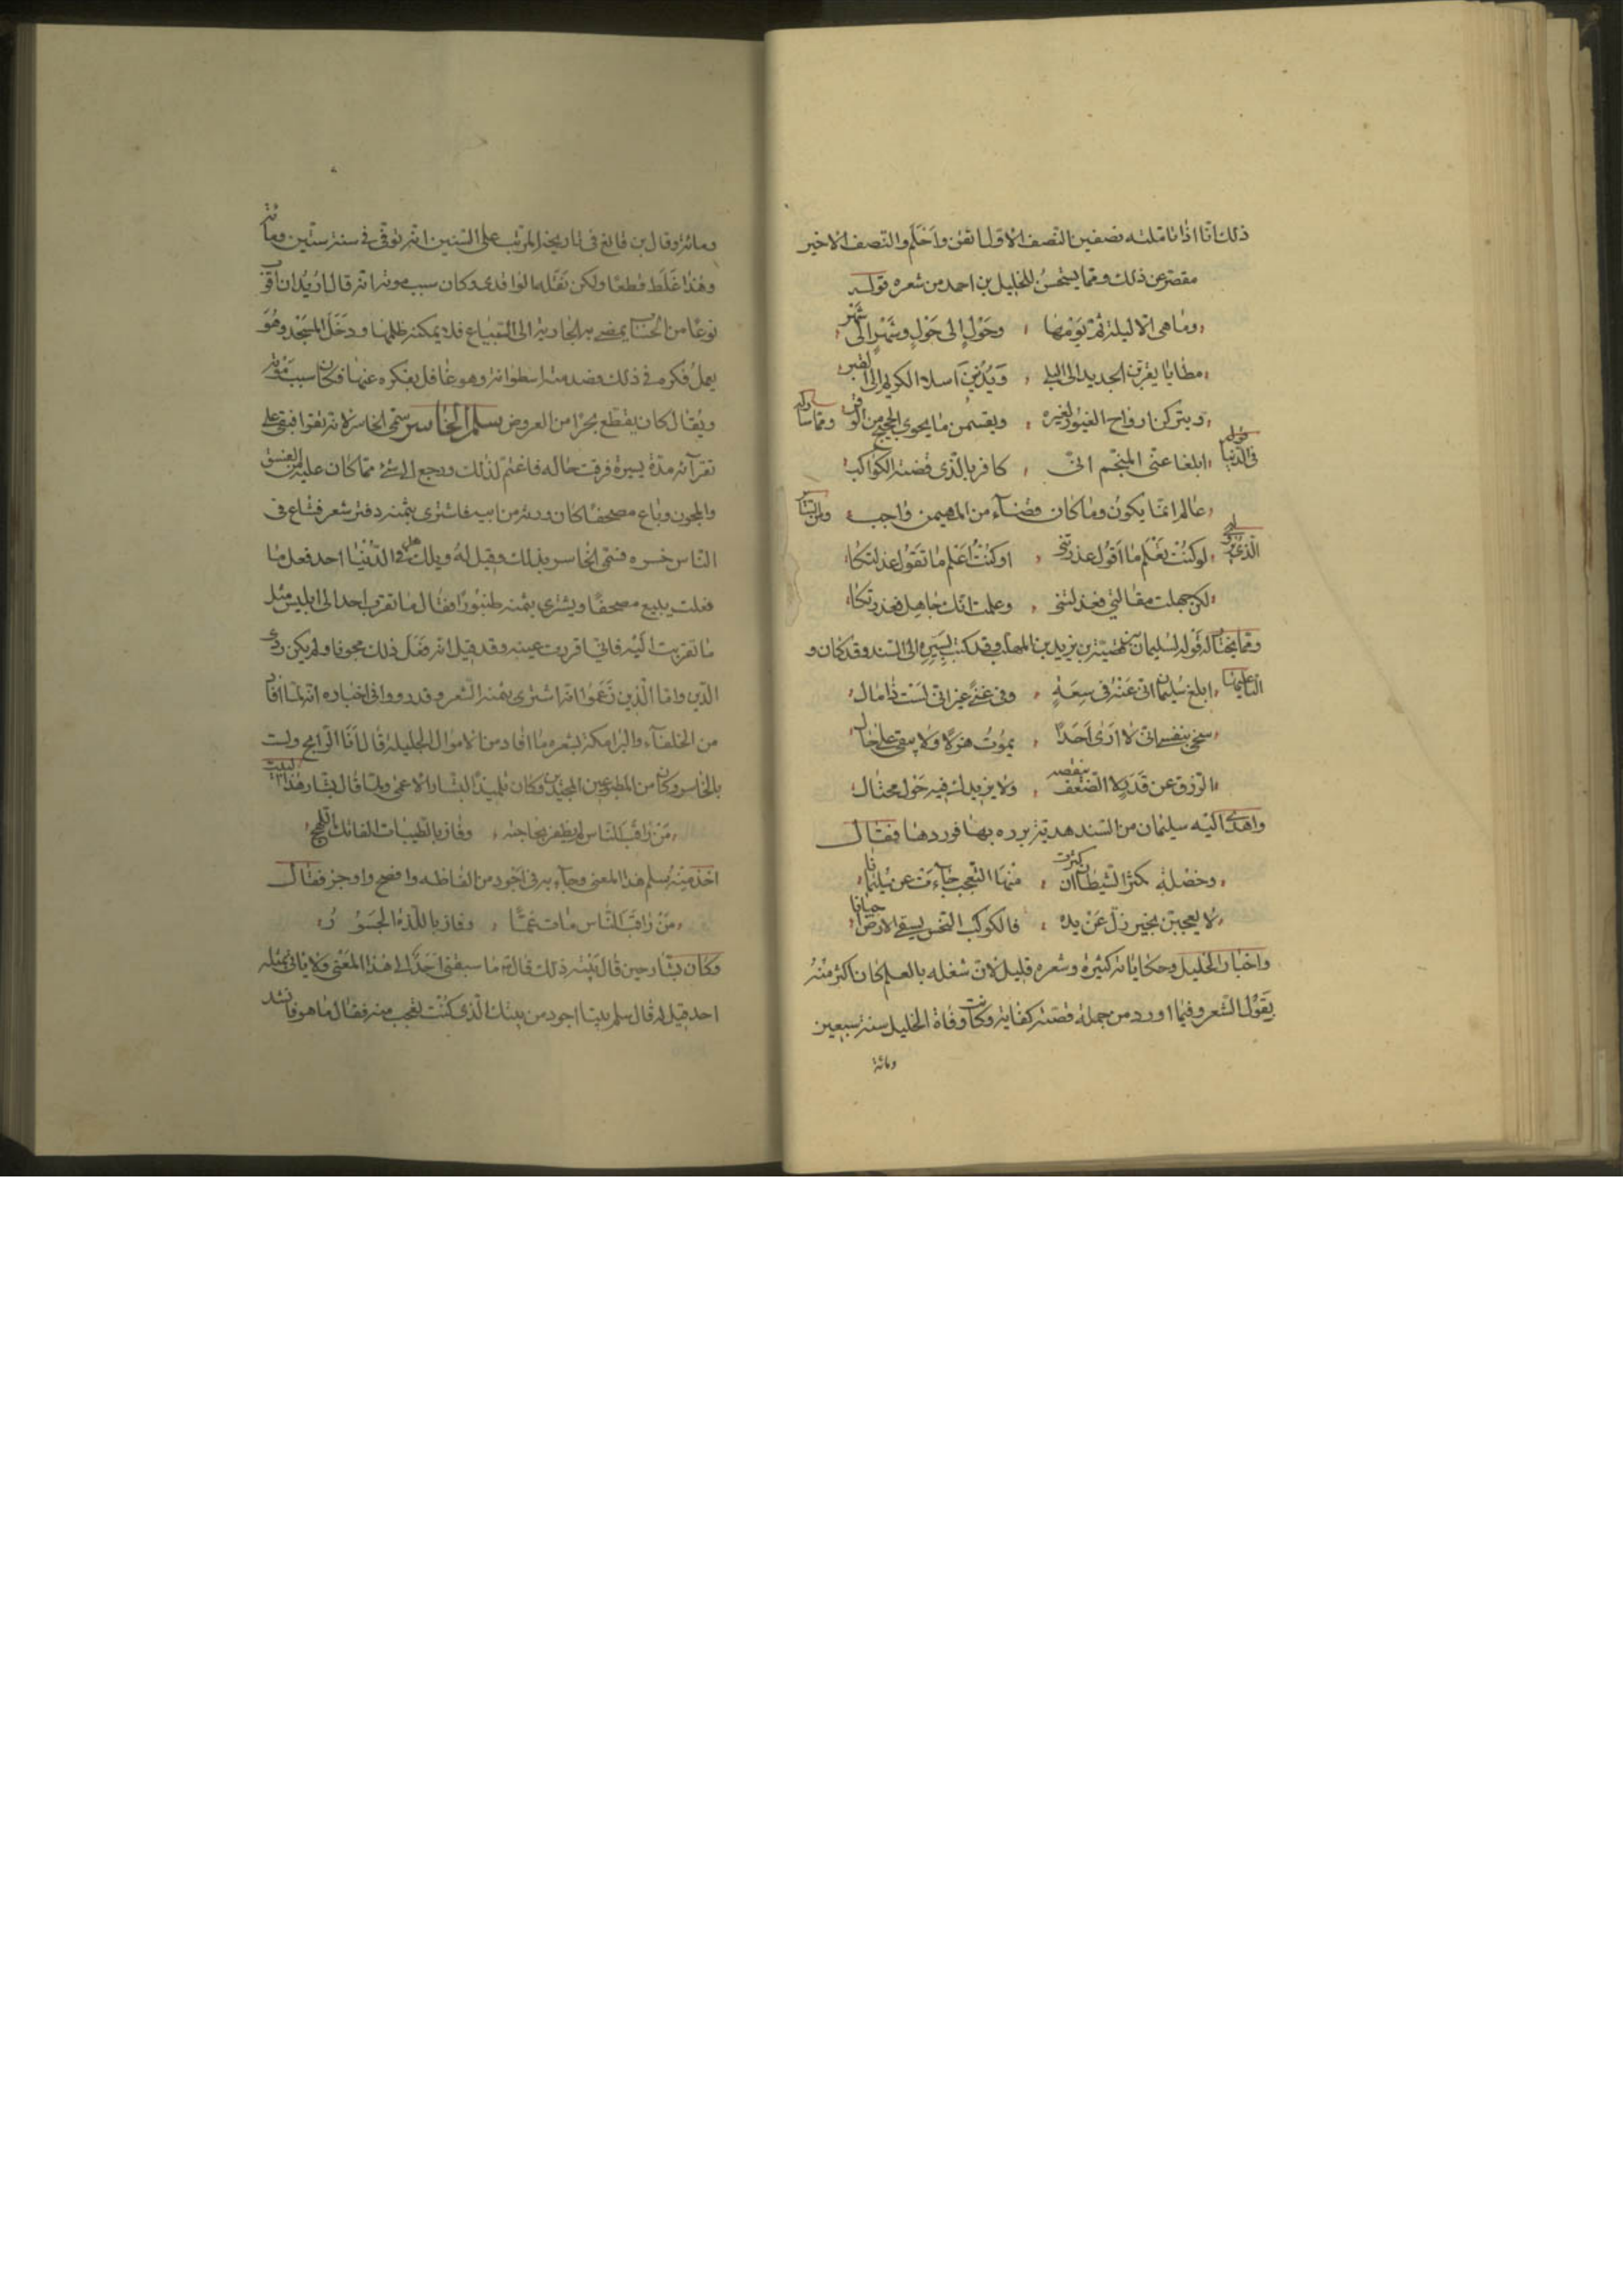 ذلك انا اذا تاملته نصفين النصف الاول اتقن واحكم والنصف الاخير
مقصر عن ذلك ومما يستحسن للخليل بن احمد من شعره قوله
وما هى الا ليلة ثم يومها وحول الى حول وشهر الى شهر
مطايا يقربن الجديد الى البلى ويدنين اسلاء الكريم الى القبر
ويتركن ارواح الغيور لغيره ويقسمن ما يحوى الشحيح من الوفر ومما سار له
قوله فى الدنيا ابلغا عنى المنجم انى كافر بالذى قضته الكواكب
عالم انما يكون وما كان قضاء من المهيمن واجب
الذى لو كنت تعلم ما اقول عذرتنى او كنت اعلم ما تقول عذلتكا
لكن جهلت مقالتى فعذلتنى وعلمت انك جاهل فعذرتكا
ومما يختار له قوله لسليمان بن قبيصة بن يزيد بن المهلب وقد كتب اليه الى السند وقد كان و
ابلغ سليمان انى عنه فى سعة وفى غنى غير انى لست ذا مال
سخى بنفسى انى لا ارى احدا يموت هزلا ولا يبقى على حال
الرزق عن قدر لا الضعف ينقصه ولا يزيدك فيه حول محتال
واهدى اليه سليمان من السند هدية يره بها فوردها فقال
وخصلة يكثر الشيطان ان ذكرت منها التعجب جاءت من سليمانا
لا تعجبن بخير زل عن يده فالكوكب النحس يسقى الارض احيانا
واخبار الخليل وحكاياته كثيرة وشعره قليل لان شغله بالعلم كان اكثر منه
بقول الشعر وفيما اورد من جملة قصته كفاية وكانت وفاة الخليل سنة سبعين
ومائة
ومائة وقال بن قانع فى تاريخه المرتب على السنين انه توفى فى سنة ستين ومائة
وهذا غلط قطعا ولكن نقله الواقدى وكان سبب موته انه قال اريد ان اقرب
نوعا من الحساب يمضى به الجارية الى البياع فلا يمكنه ظلمها ودخل المسجد وهو
يعمل فكره فى ذلك فصدمته اسطوانة وهو غافل بفكره عنها فكان سبب موته
ويقال كان يقطع بحرا من العروض سلم الخاسر سمى الخاسر لانه تقرا فبقى على
تقرائه مدة يسيرة فرقت حاله فاغتم لذلك ورجع الى شئ مما كان عليه من الفسق
والمجون وباع مصحفا كان ورثه من ابيه فاشترى بثمنه دفتر شعر فشاع فى
الناس خبره فسمى الخاسر بذلك وقيل له ويلك هل فى الدنيا احد فعل ما
فعلت يبيع مصحفا ويشترى بثمنه طنبورا فقال ما تقرب احد الى ابليس مثل
ما تقربت اليه فانى اقررت عينه وقد قيل انه فعل ذلك مجونا ولم يكن ردى
الدين واما الذين زعموا انه اشترى بثمنه الشعر وقد رووا فى اخباره انه لما افاد
من الخلفاء والبرامكة بشعره ما افاد من الاموال الجليلة قال انا الرابح ولست
بالخاسر وكان من المطبوعين المجيدين وكان تلميذا لبشار الاعمى ولما قال بشار هذا البيت
من راقب الناس لم يظفر بحاجته وفاز بالطيبات الفاتك اللهج
اخذ منه سلم هذا المعنى وجاء به فى اجود من الفاظه وافصح واوجز فقال
من راقب الناس مات غما وفاز باللذة الجسور
وكان بشار حين قال بيته ذلك قال ما سبقنى احد الى هذا المعنى ولا ياتى بمثله
احد قيل له قال سلم بيتا اجود من بيتك الذى كنت تعجب منه فقال ما هو فانشد